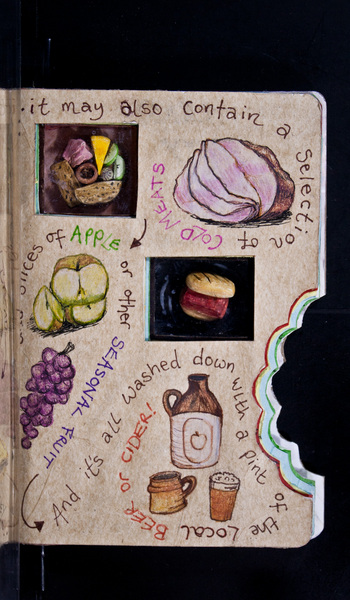 ..it may also contain a
selection of
COLD MEATS
slices of APPLE
or other
SEASONAL FRUIT
And it's all washed down
with a pint
of the LOCAL
BEER or CIDER!